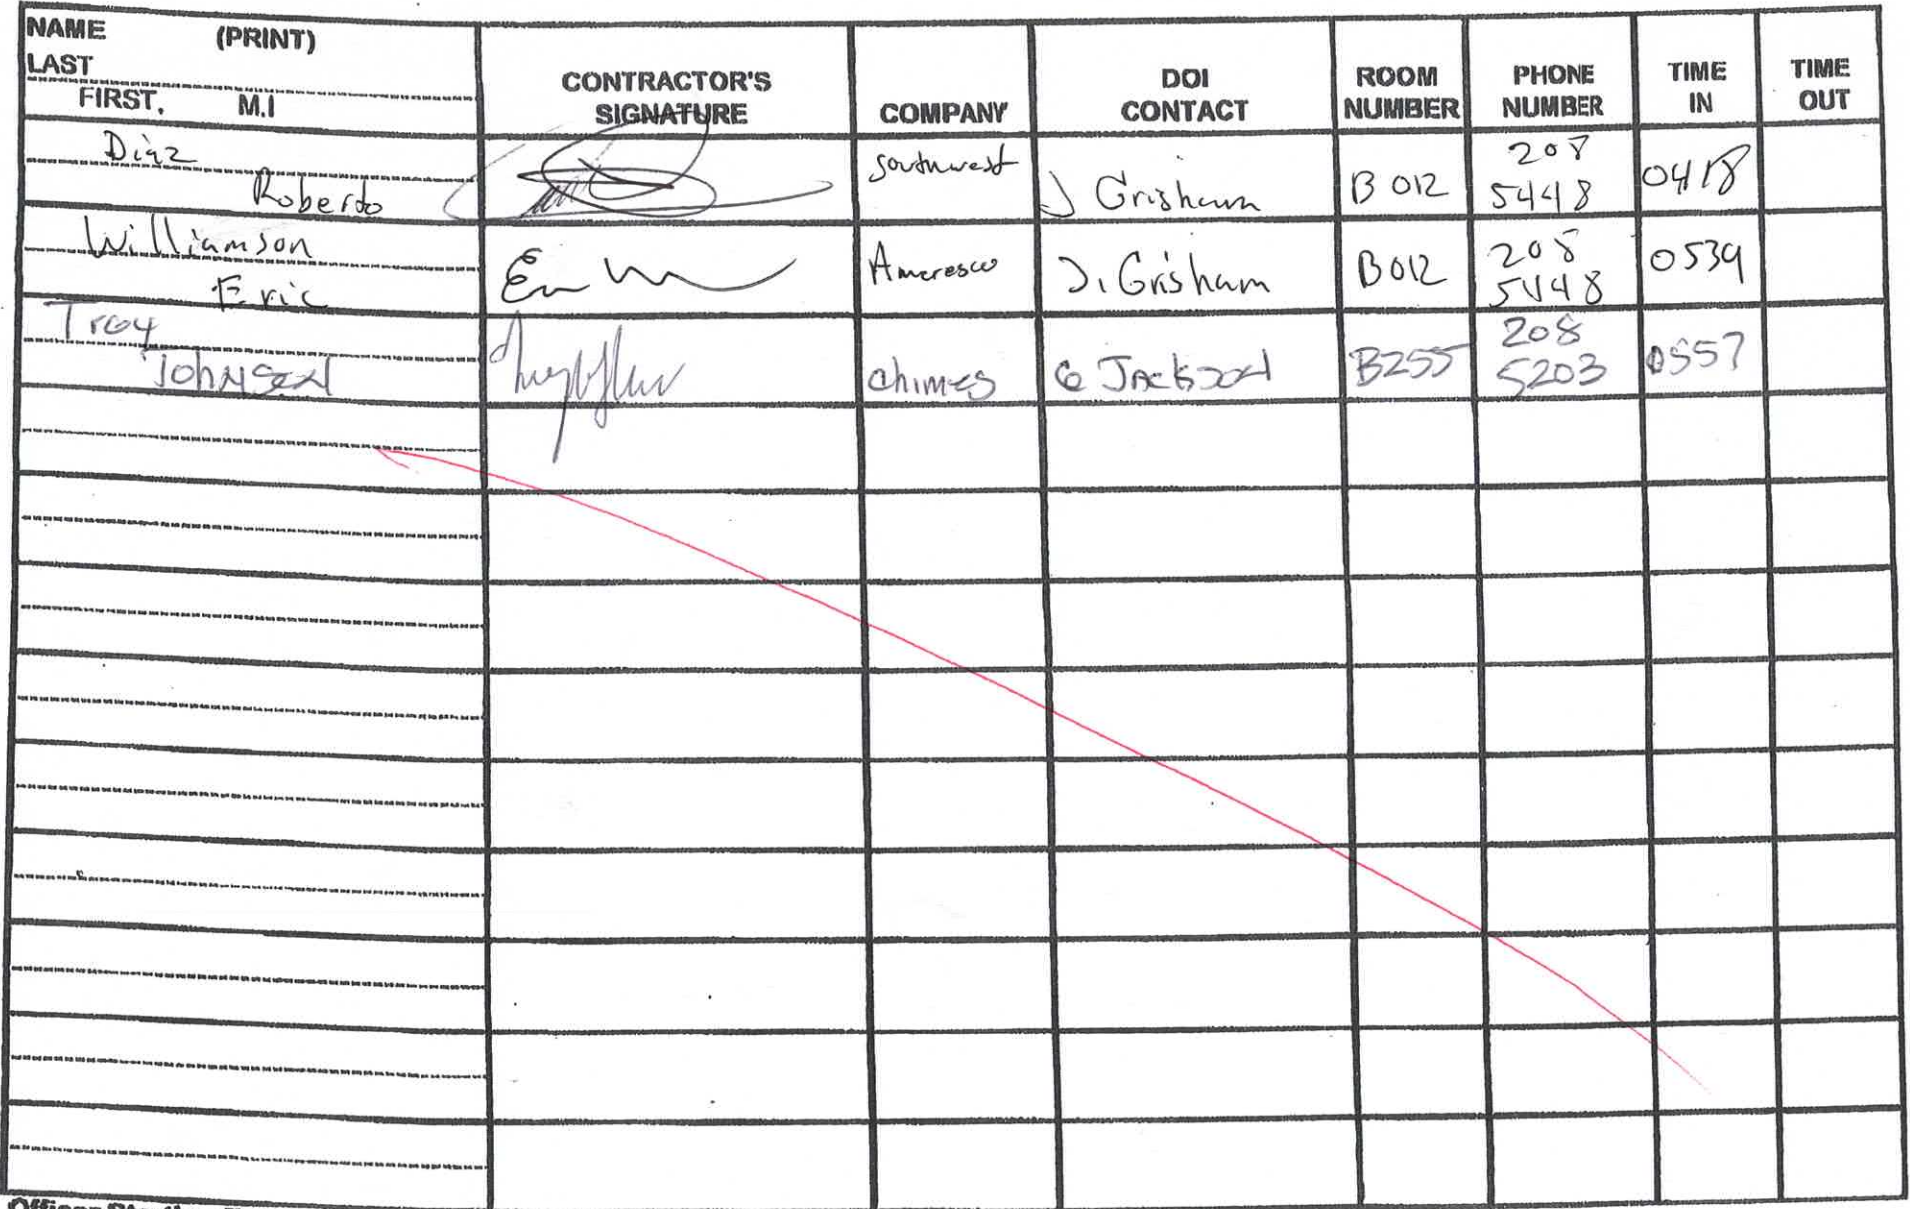 NAME (PRINT)
LAST
FIRST, M.I
CONTRACTOR'S
SIGNATURE
COMPANY
DOI
CONTACT
ROOM
NUMBER
PHONE
NUMBER
TIME
IN
TIME
OUT
Diaz
Roberto
Southwest
J Grisham
B 012
208
5448
0418
Williamson
Eric
Ameresco
J. Grisham
B012
208
5448
0539
Troy
Johnson
Chimes
G Jackson
B255
208
5203
0557